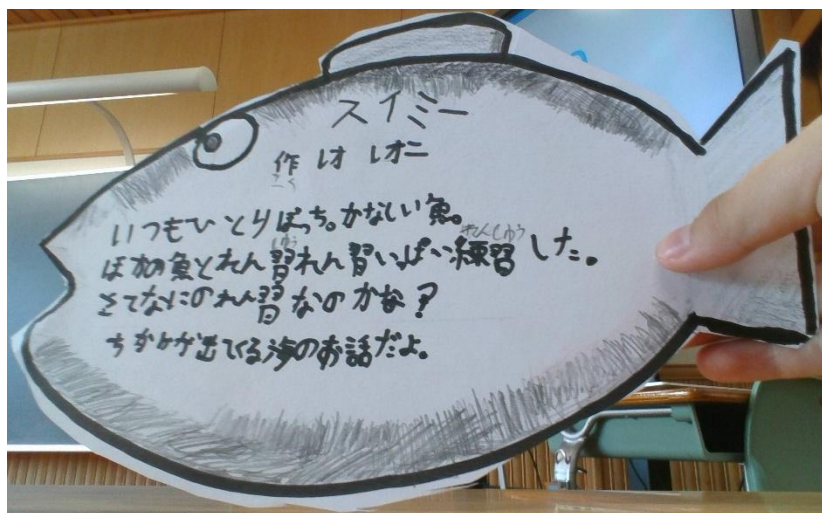 スイミー
作 レオ レオニ
いつもひとりぼっち。かなしい魚。
ほかの魚とれん習れん習いっぱい練習した。
さてなにのれん習なのかな？
ちからが出てくる海のお話だよ。